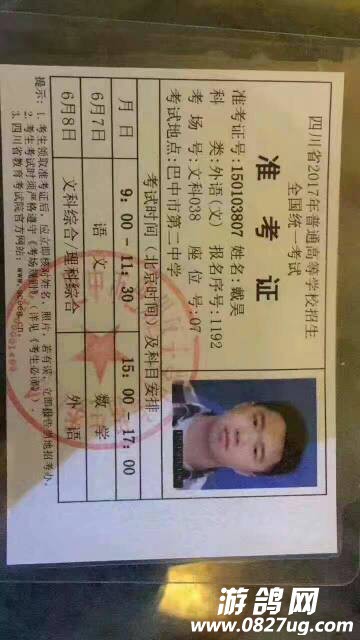 四川省2017年普通高等学校招生
全国统一考试
准考证
准考证号:150103807 姓名:戴昊
科 类:外语(文) 报名序号:1192
考 场 号:文科038 座 位 号:07
考试地点:巴中市第二中学
考试时间(北京时间)及科目安排
月 日 9:00-11:30 15:00-17:00
6月7日 语 文 数 学
6月8日 文科综合/理科综合 外 语
提示:1.考生领取准考证后,应立即核对姓名、照片,若有误,立即报告当地招考办。
2.考生考试时须严格遵守《考场规则》,(详见《考生必读》)。
3.四川省教育考试院官方网站:www.sceea.cn
游鸽网
www.0827ug.com